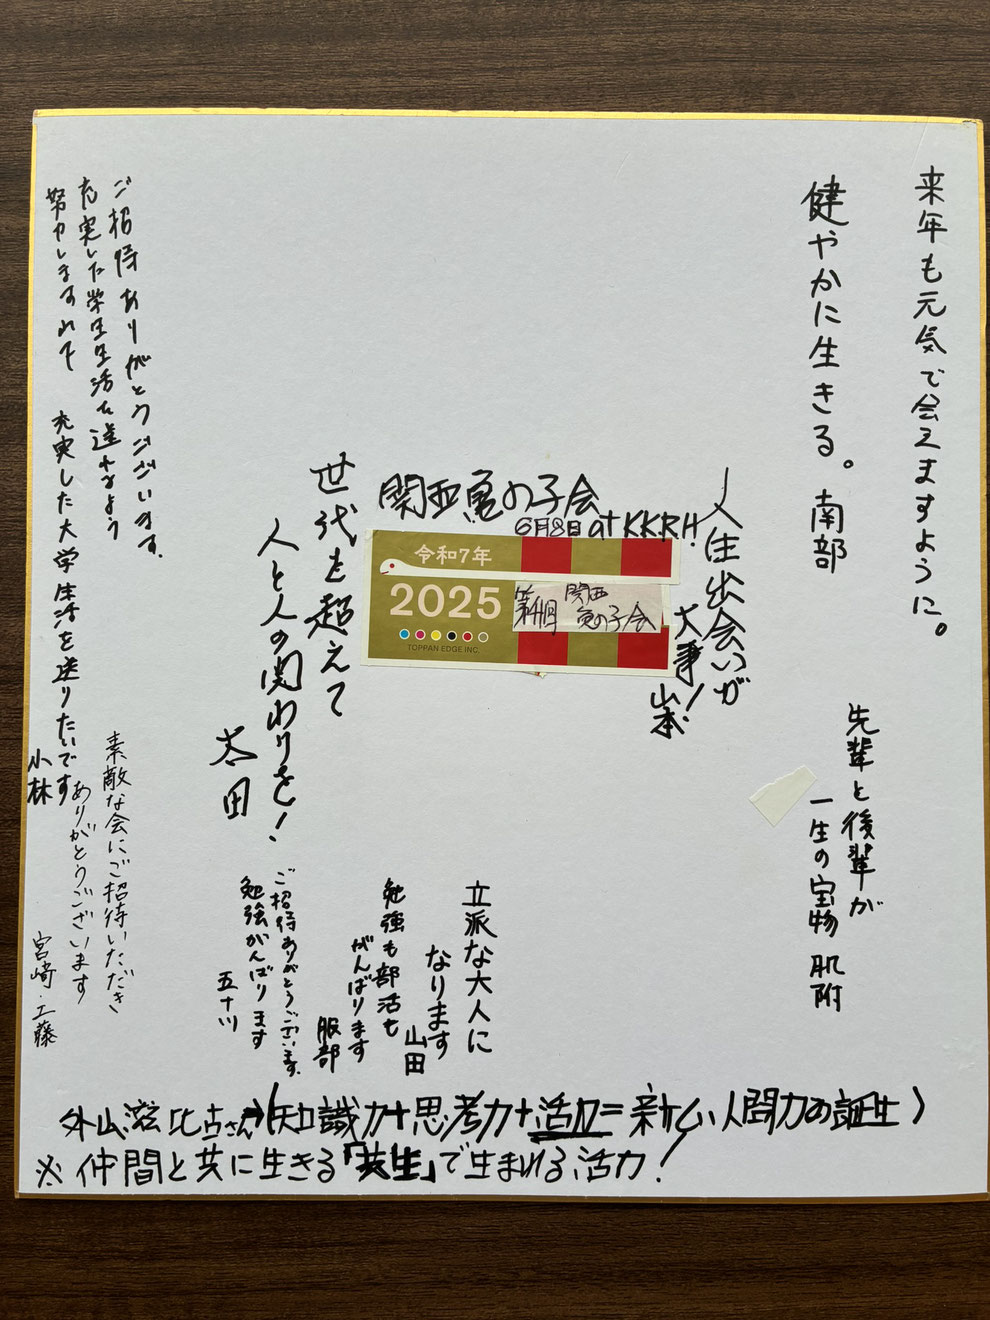 来年も元気で会えますように。
健やかに生きる。 南部
先輩と後輩が
一生の宝物 肌附
人生出会いが
大事! 山本
関西亀の子会
6月8日 at KKRH
令和7年
2025
TOPPAN EDGE INC.
関西
亀の子会
世代を超えて
人と人の関わりを!
太田
立派な大人に
なります
山田
勉強も部活も
がんばります
服部
ご招待ありがとうございます。
勉強がんばります
五十川
ご招待ありがとうございます。
充実した学生生活を送れるよう
努力しますれて
充実した大学生活を送りたいです
小林
素敵な会にご招待いただき
ありがとうございます
宮崎・工藤
外山滋比古さん→(知識力+思考力+活力=新しい人間力の誕生)
※仲間と共に生きる「共生」で生まれる活力!